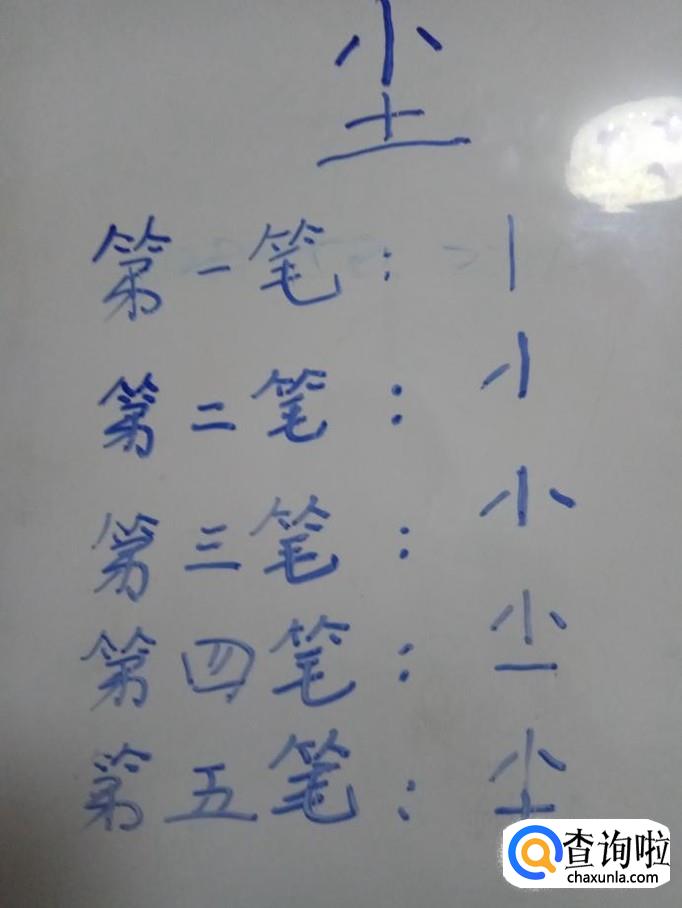 尘
第一笔：丨
第二笔：
第三笔：小
第四笔：
第五笔：
查询啦
chaxunla.com